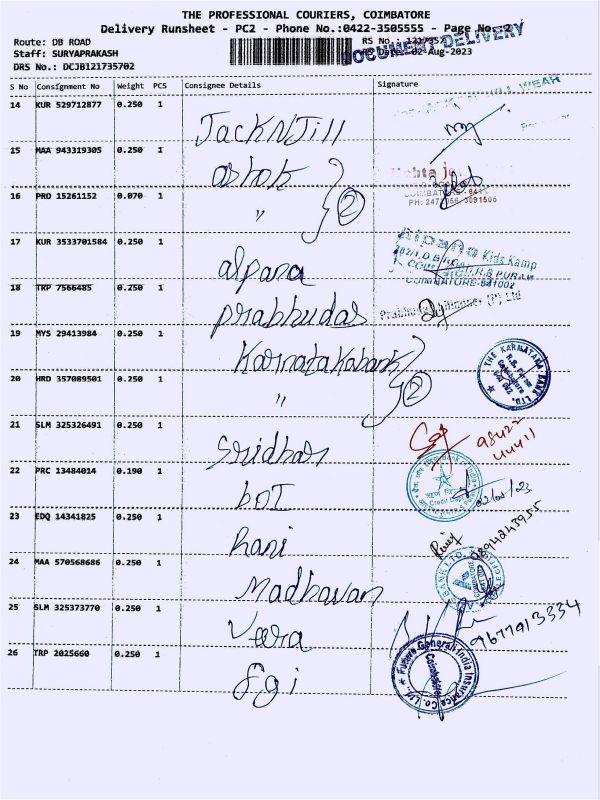 THE PROFESSIONAL COURIERS, COIMBATORE
Delivery Runsheet - PC2 - Phone No.:0422-3505555 - Page No. 2
Route: DB ROAD
Staff: SURYAPRAKASH
DRS No.: DCJB121735702
RS No.: 1217357
RS Date: 02-Aug-2023
DOCUMENT DELIVERY
S No Consignment No Weight PCS Consignee Details Signature
14 KUR 529712877 0.250 1 JackNJill
15 MAA 943319305 0.250 1 ashok
16 PRO 15261152 0.070 1 " 2
COIMBATORE
17 KUR 3533701584 0.250 1 alpana
Alpana Kids Kamp
COIMBATORE-641002
18 TRP 7566485 0.250 1 prabhudas
19 MYS 29413984 0.250 1 Karnatakabank
THE KARNATAKA BANK LTD.
20 HRD 357089501 0.250 1 " 2
21 SLM 325326491 0.250 1 Sridhar
98422
44411
22 PRC 13484014 0.190 1 BOI
23 EDQ 14341825 0.250 1 Rani
Rani 8894243955
24 MAA 570568686 0.250 1 Madhavan
25 SLM 325373770 0.250 1 Veera
9677913334
26 TRP 2025660 0.250 1 fgi
Future Generali India Insurance Co. Ltd.
Coimbatore